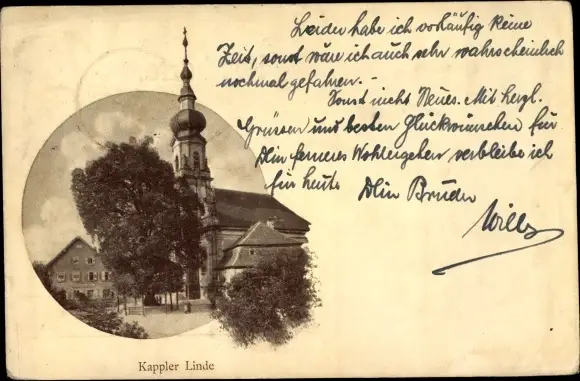 Leider habe ich vorläufig keine
Zeit, sonst wäre ich auch sehr wahrscheinlich
nochmal gefahren. -
Sonst nicht Neues. Mit herzl.
Grüssen und besten Glückwünschen für
Dein ferneres Wohlergehen verbleibe ich
für heute Dein Bruder
Willy
Kappler Linde